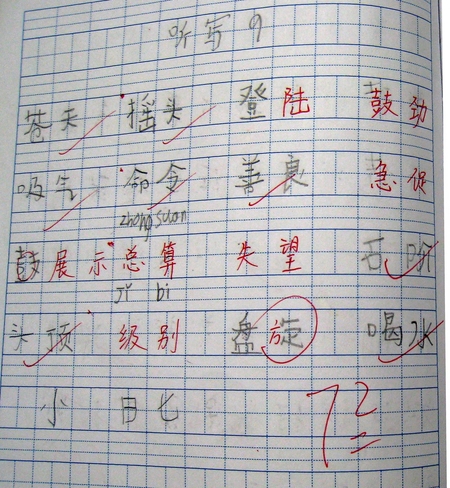 听写9
苍天 摇头 登陆 鼓劲
吸气 命令 善良 急促
zhong suan
鼓 展示 总算 失望 石
Ji bi
头顶 级别 盘旋 喝水
小 日 72